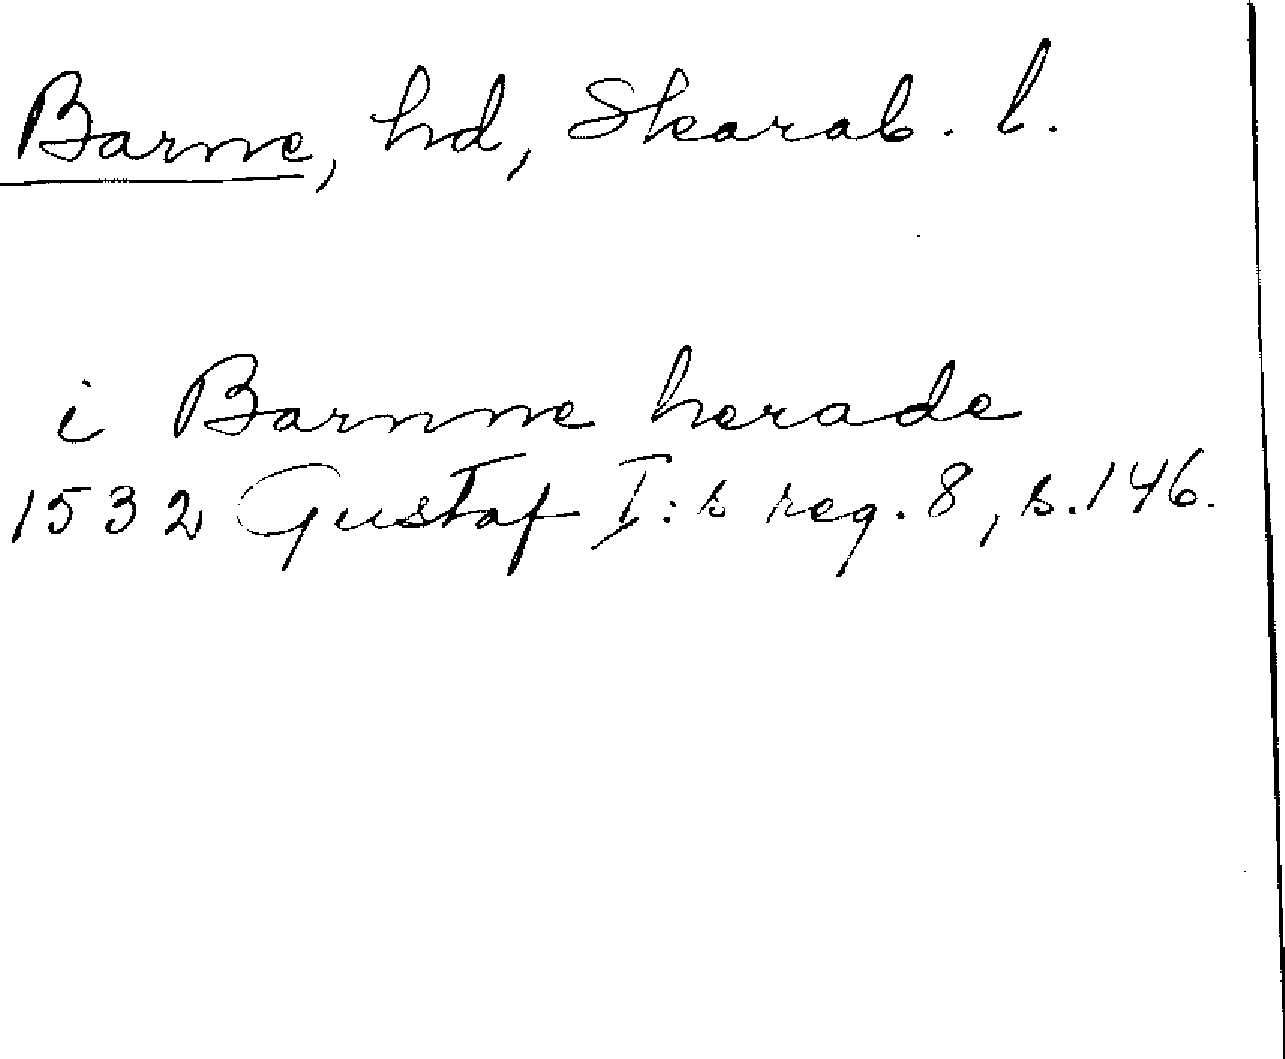 Barne, hd, Skarab. l.
i Barnne herade
1532 Gustaf I:s reg. 8, s. 146.